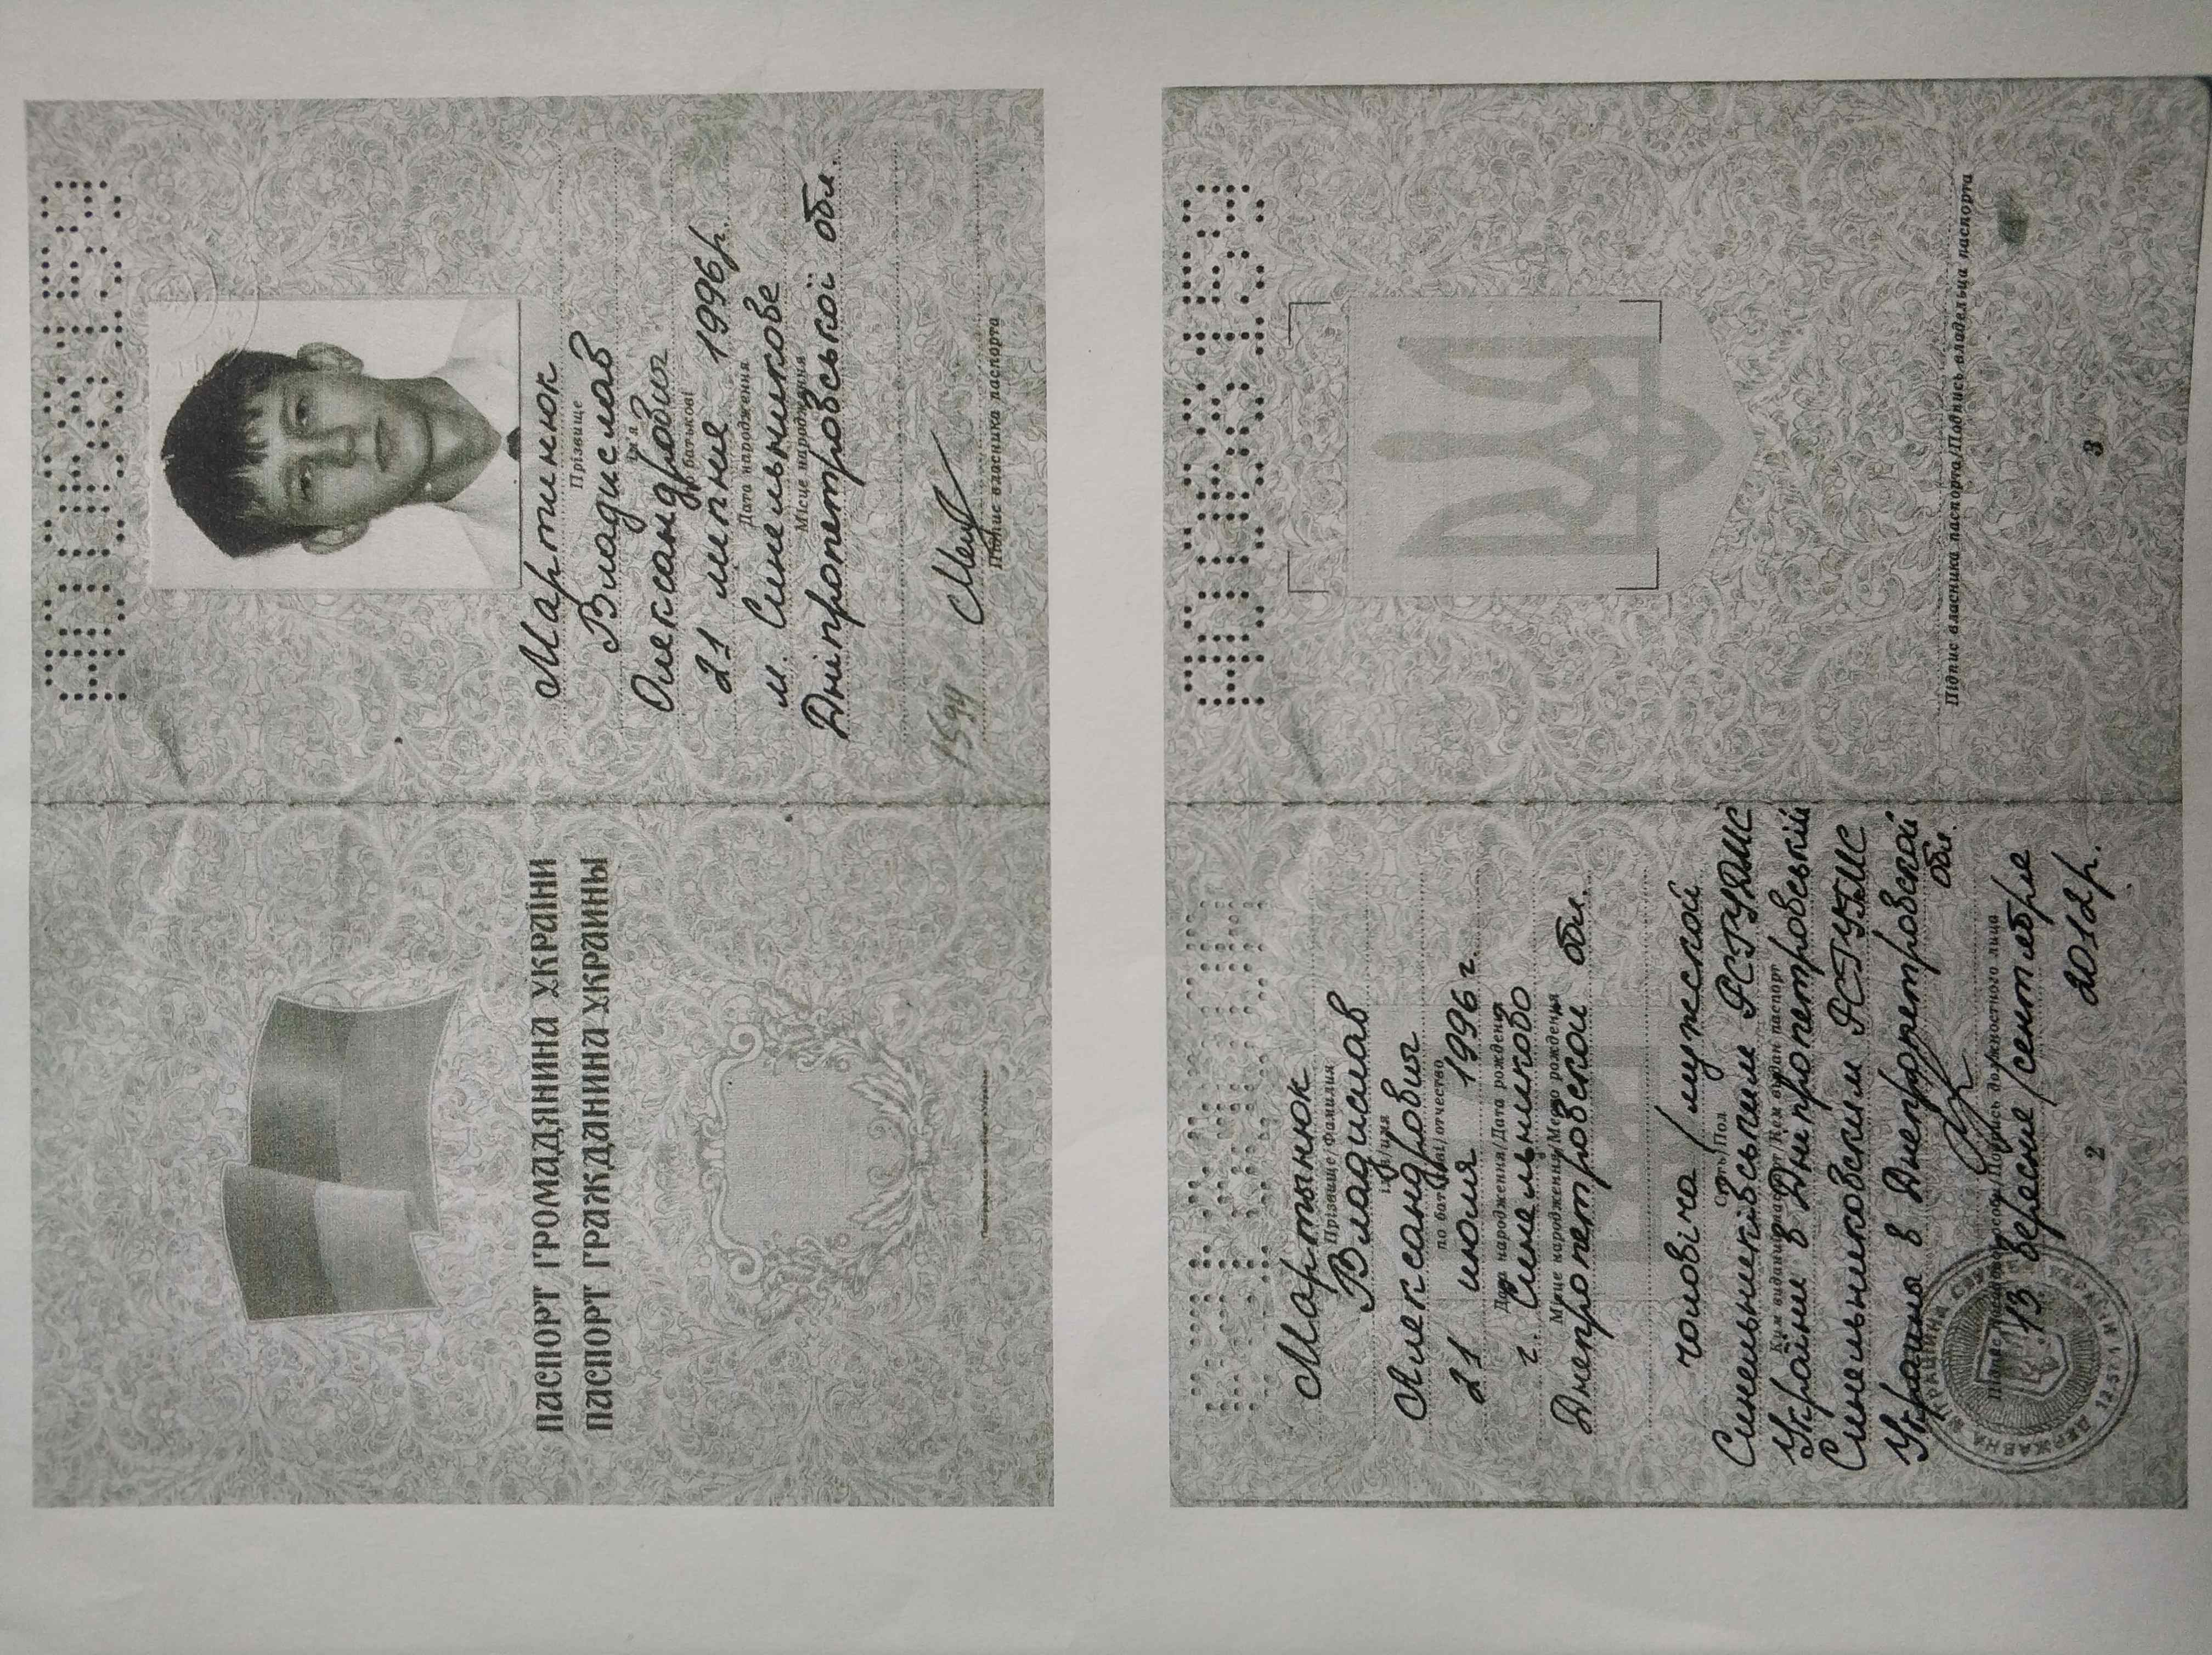 АО 068159
ПАСПОРТ ГРОМАДЯНИНА УКРАЇНИ
ПАСПОРТ ГРАЖДАНИНА УКРАИНЫ
Мартинюк
Прізвище
Владислав
ім'я
Олександрович
по батькові
21 липня 1996р.
Дата народження
м. Синельникове
Місце народження
Дніпропетровської обл.
1594
Підпис власника паспорта
АО 068159
Мартынюк
Прізвище/Фамилия
Владислав
ім'я/имя
Александрович
по батькові/отчество
21 июля 1996г.
Дата народження/Дата рождения
г. Синельниково
Місце народження/Место рождения
Днепропетровской обл.
чоловіча / мужской
Стать/Пол
Синельниківським РСГУДМС
Ким виданий паспорт/Кем выдан паспорт
України в Дніпропетровській
Синельниковским РСГУГМС
Украины в Днепропетровской
обл.
Підпис посадової особи/Подпись должностного лица
13 вересня/сентября
2012р.
2
ДЕРЖАВНА МІГРАЦІЙНА СЛУЖБА
Підпис власника паспорта/Подпись владельца паспорта
3